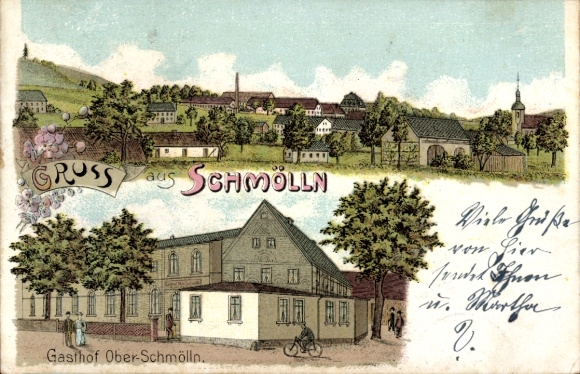 GRUSS aus SCHMÖLLN
Viele Grüße
von hier
sendet Ihnen
u. Martha
Gasthof Ober-Schmölln.